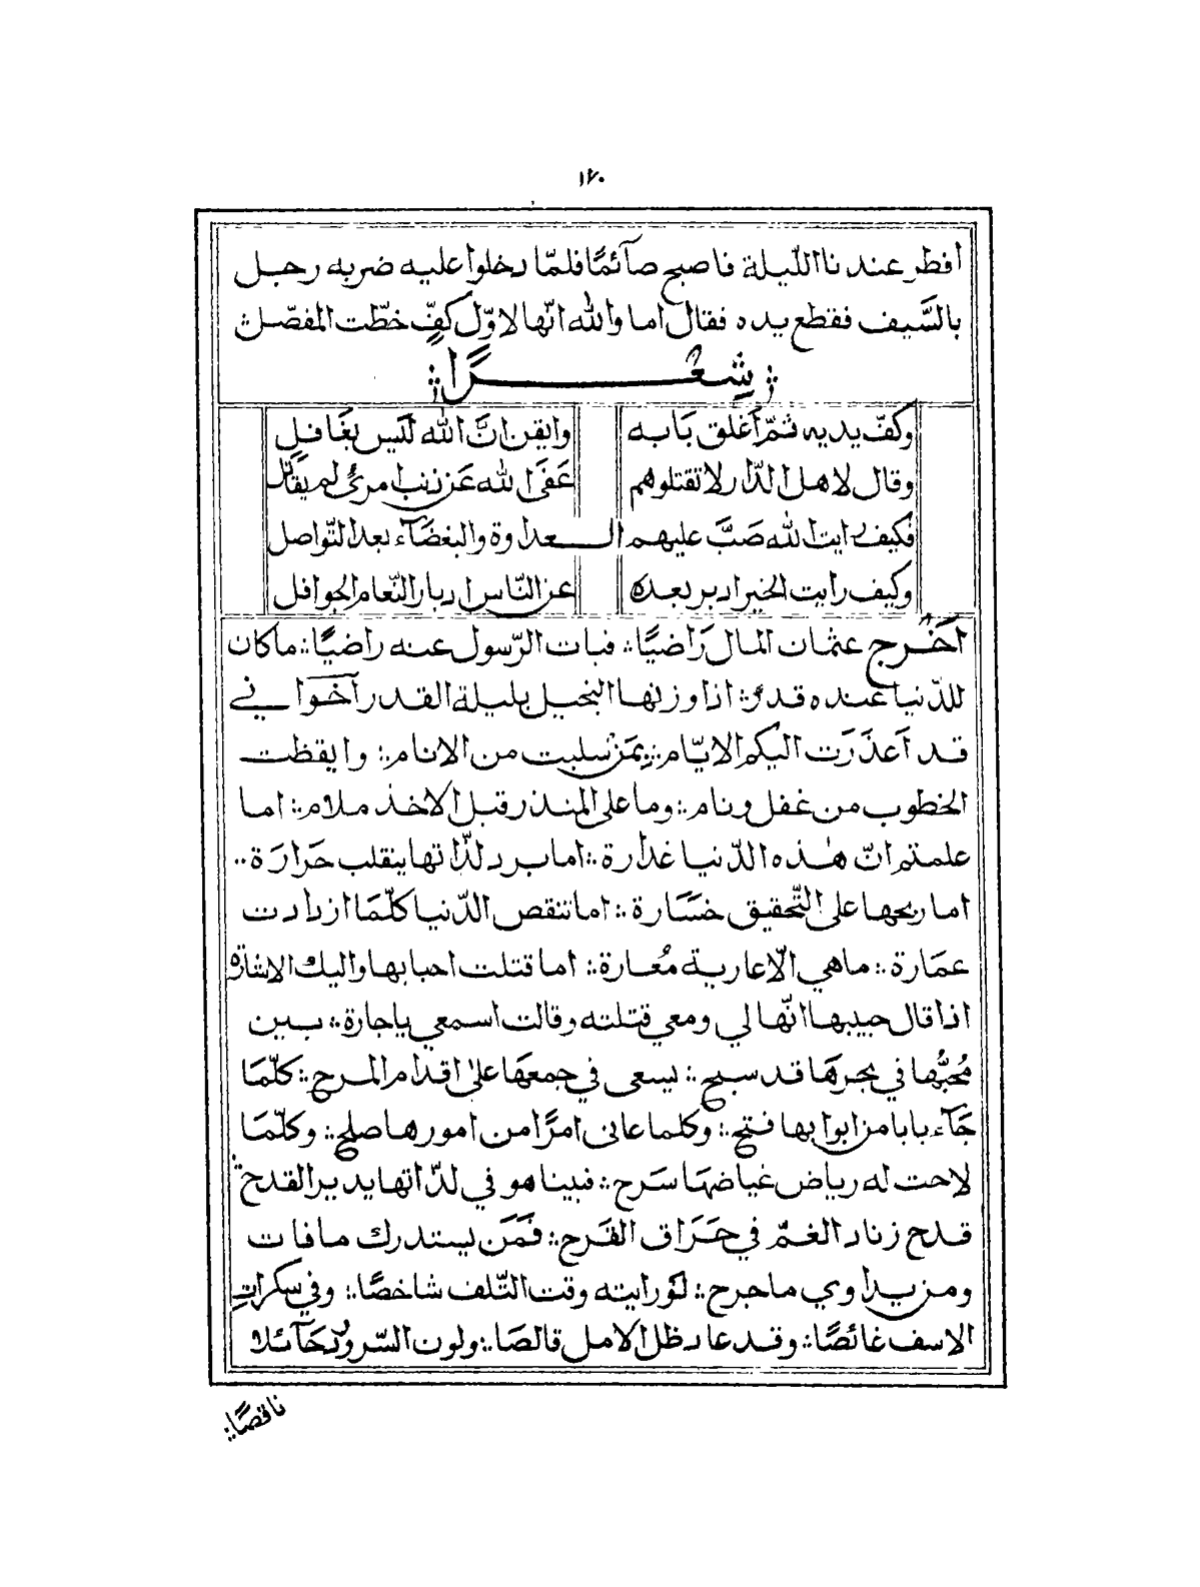 ١٢٠
افطر عندنا اللّيلة فاصبح صآئمًا فلمّا دخلوا عليه ضربه رجل
بالسَّيف فقطع يده فقال اما والله انّها لاوّل كفٍّ خطّت المفصّل
شِعْرًا
وكفّ يديه ثمّ اَغلق بَابه وايقن انَّ الله لَيس بغَافلٍ
وقال لاهل الدّار لا تقتلوهم عَفَى الله عَن ذنب امرئٍ لم يقَاتل
فكيف رايت الله صَبَّ عليهم العداوة والبغضَآء بعد التّواصل
وكيف رايت الخير ادبر بعده عن النّاس ادبار النّعام الجوافل
اَخْرج عثمان المال رَاضيًا فبات الرّسول عنه راضيًا ما كان
للدّنيا عنده قدر اذا وزنها البخيل بليلة القدر اَخَواني
قد اَعذَرَت اليكم الايّام بمَن سلبت من الانام وايقظت
الخطوب من غفل ونام وما على المنذر قبل الاخذ ملام اما
علمتم انّ هٰذه الدّنيا غدارة اما برد لذّاتها ينقلب حَرارَة
اما ربحها على التّحقيق خسَارة اما تنقص الدّنيا كلّمَا ازدادت
عمَارة ما هي الّا عارية مُعارة اما قتلت احبابها واليك الاشارة
اذا قال حبيبها انّها لي ومعي قتلته وقالت اسمعي ياجارة بين
مُحبُّها في بحرهَا قد سبح يسعى في جمعهَا على اقدام المرح كلّمَا
جَآء بابا من ابوابها فتح وكلما عانى امرًا من امورها صلح وكلّمَا
لاحت له رياض غياضهَا سَرح فبينا هو في لذّاتها يدير القدح
قدح زناد الغمّ في حَرَاق القَرح فَمَن يستدرك ما فات
ومن يداوي ما جرح لَو رايته وقت التّلف شاخصًا وفي سكراتِ
الاسف غائصًا وقد عاد ظل الامل قالصَا ولون السّرور حَآئلا
ناقصًا